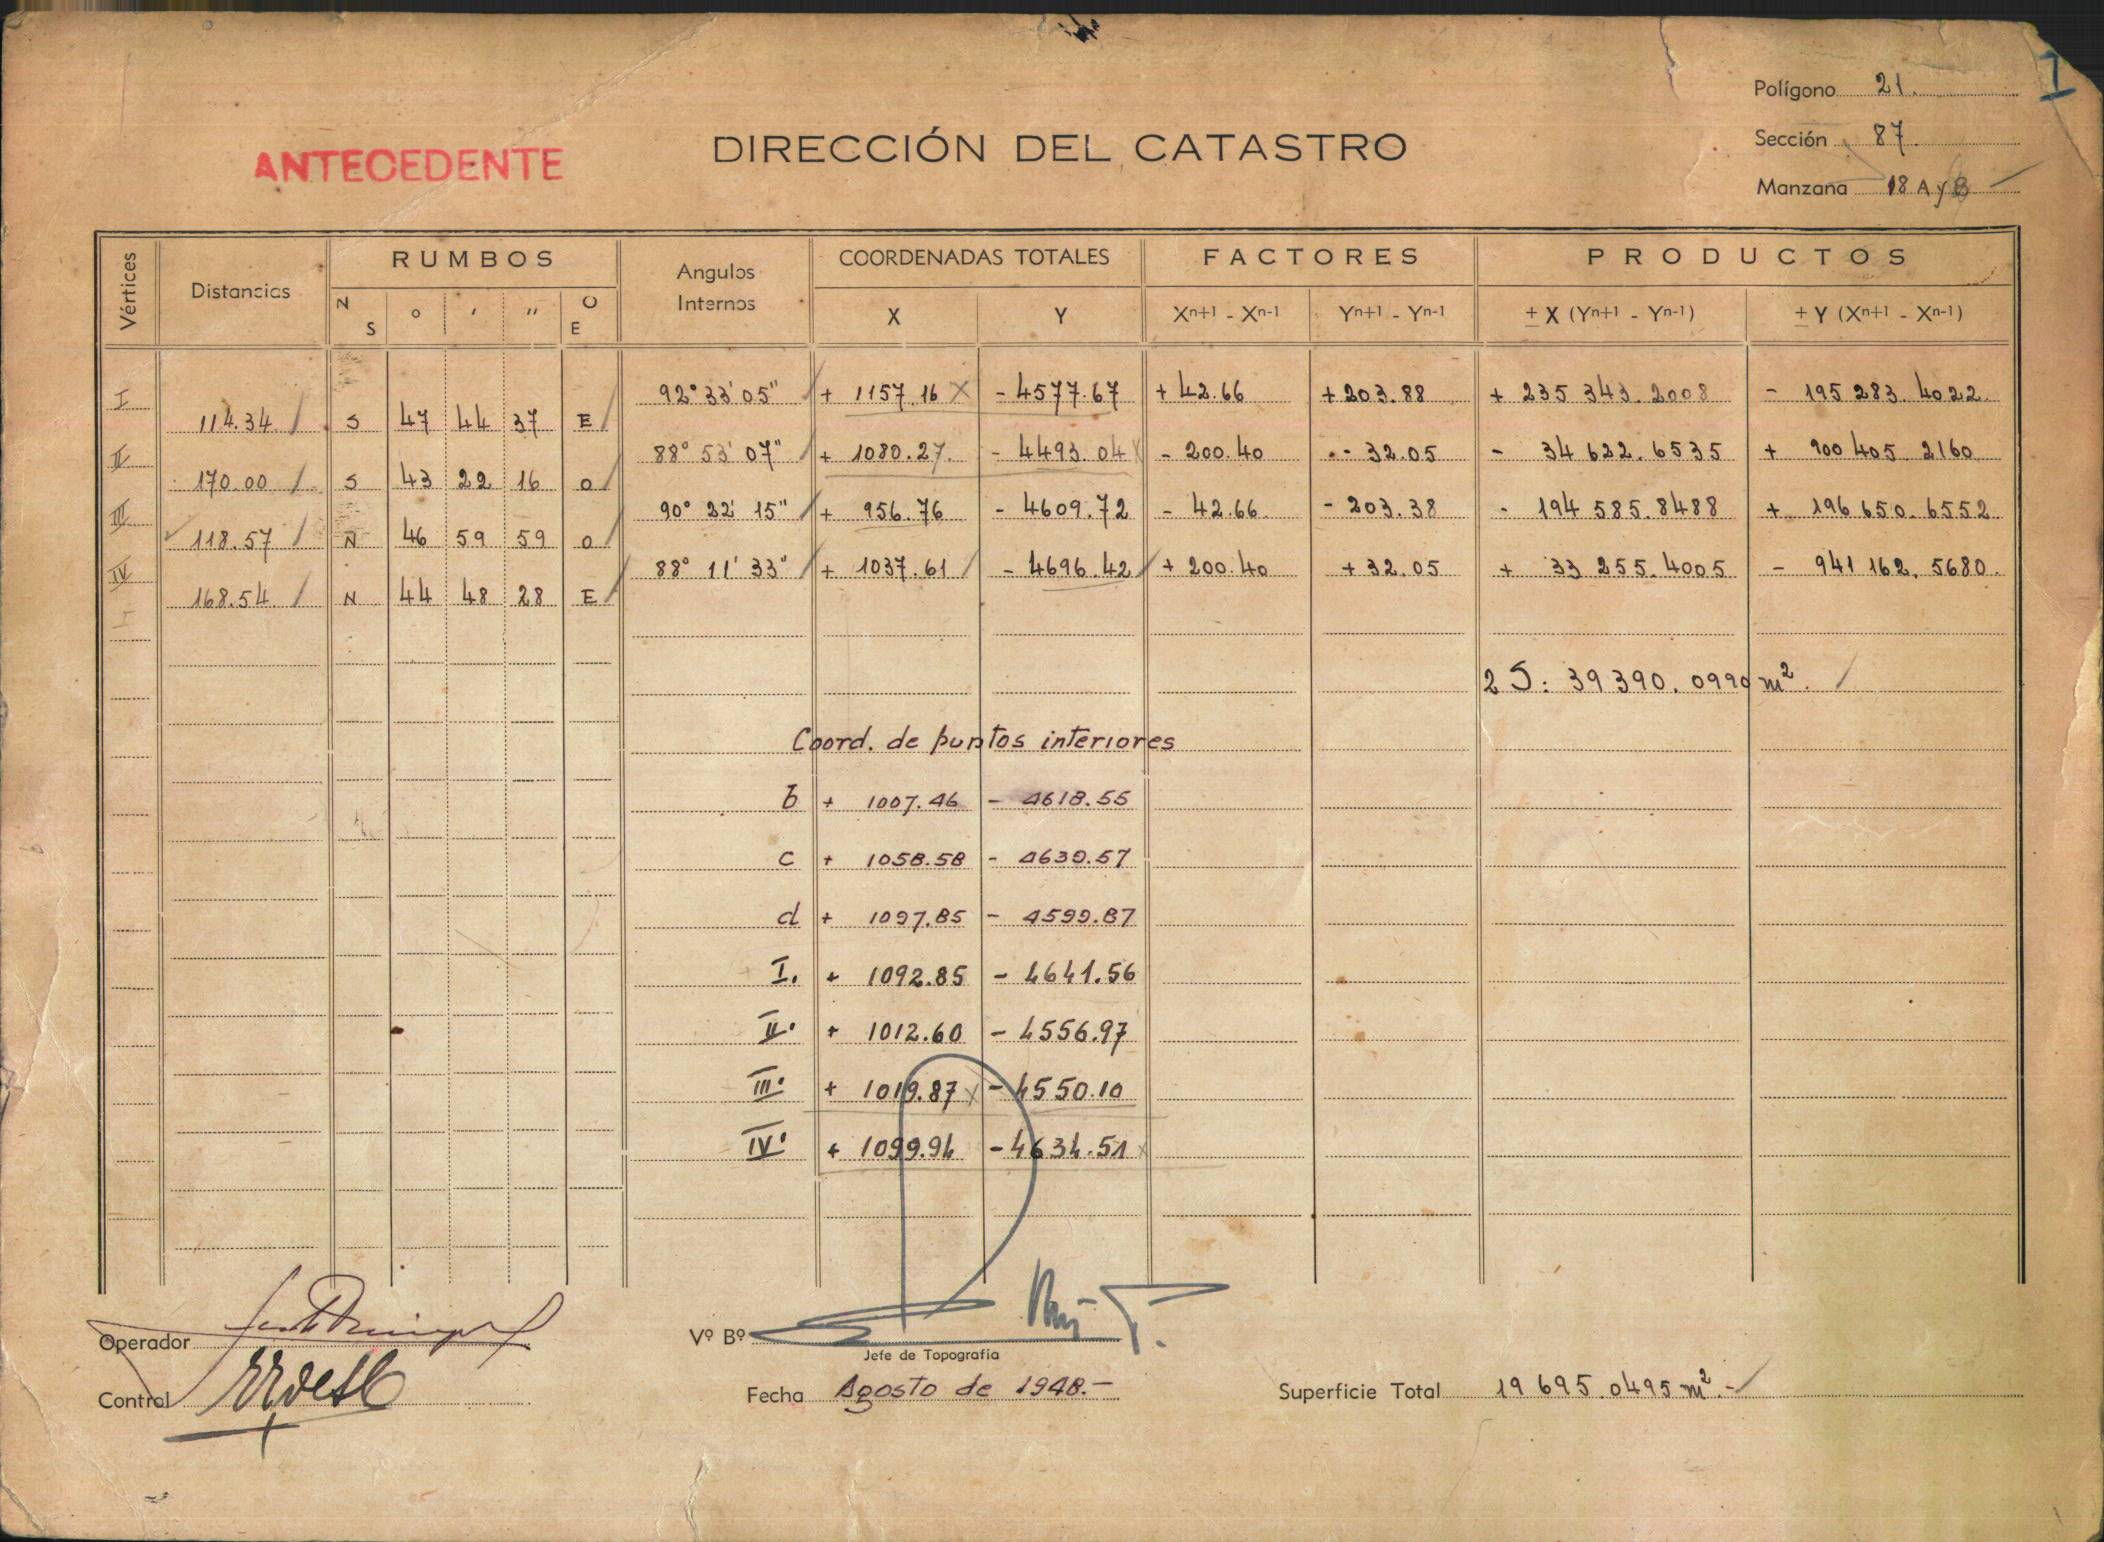 Polígono 21.
I
ANTECEDENTE
DIRECCIÓN DEL CATASTRO
Sección 87.
Manzana 18 A y B
Vértices
Distancias
RUMBOS
N S ° ' " O E
Angulos Internos
COORDENADAS TOTALES
X Y
FACTORES
Xn+1 - Xn-1 Yn+1 - Yn-1
PRODUCTOS
± X (Yn+1 - Yn-1) ± Y (Xn+1 - Xn-1)
I 92° 33' 05" + 1157.16 - 4577.67 + 42.66 + 203.88 + 235 343.2008 - 195 283.4022
114.34 S 47 44 37 E
II 88° 53' 07" + 1080.27. - 4493.04 - 200.40 - 32.05 - 34 622.6535 + 900 405.2160
170.00 S 43 22 16 O
III 90° 22' 15" + 956.76 - 4609.72 - 42.66 - 203.38 - 194 585.8488 + 196 650.6552
118.57 N 46 59 59 O
IV 88° 11' 33" + 1037.61 - 4696.42 + 200.40 + 32.05 + 33 255.4005 - 941 162.5680.
168.54 N 44 48 28 E
2 S: 39 390.0990 m².
Coord. de puntos interiores
b + 1007.46 - 4618.55
c + 1058.58 - 4639.57
d + 1097.85 - 4599.87
I. + 1092.85 - 4641.56
II. + 1012.60 - 4556.97
III. + 1019.87 - 4550.10
IV. + 1099.94 - 4634.51
Operador
Vº Bº
Jefe de Topografía
Control
Fecha Agosto de 1948.-
Superficie Total 19 695.0495 m².-